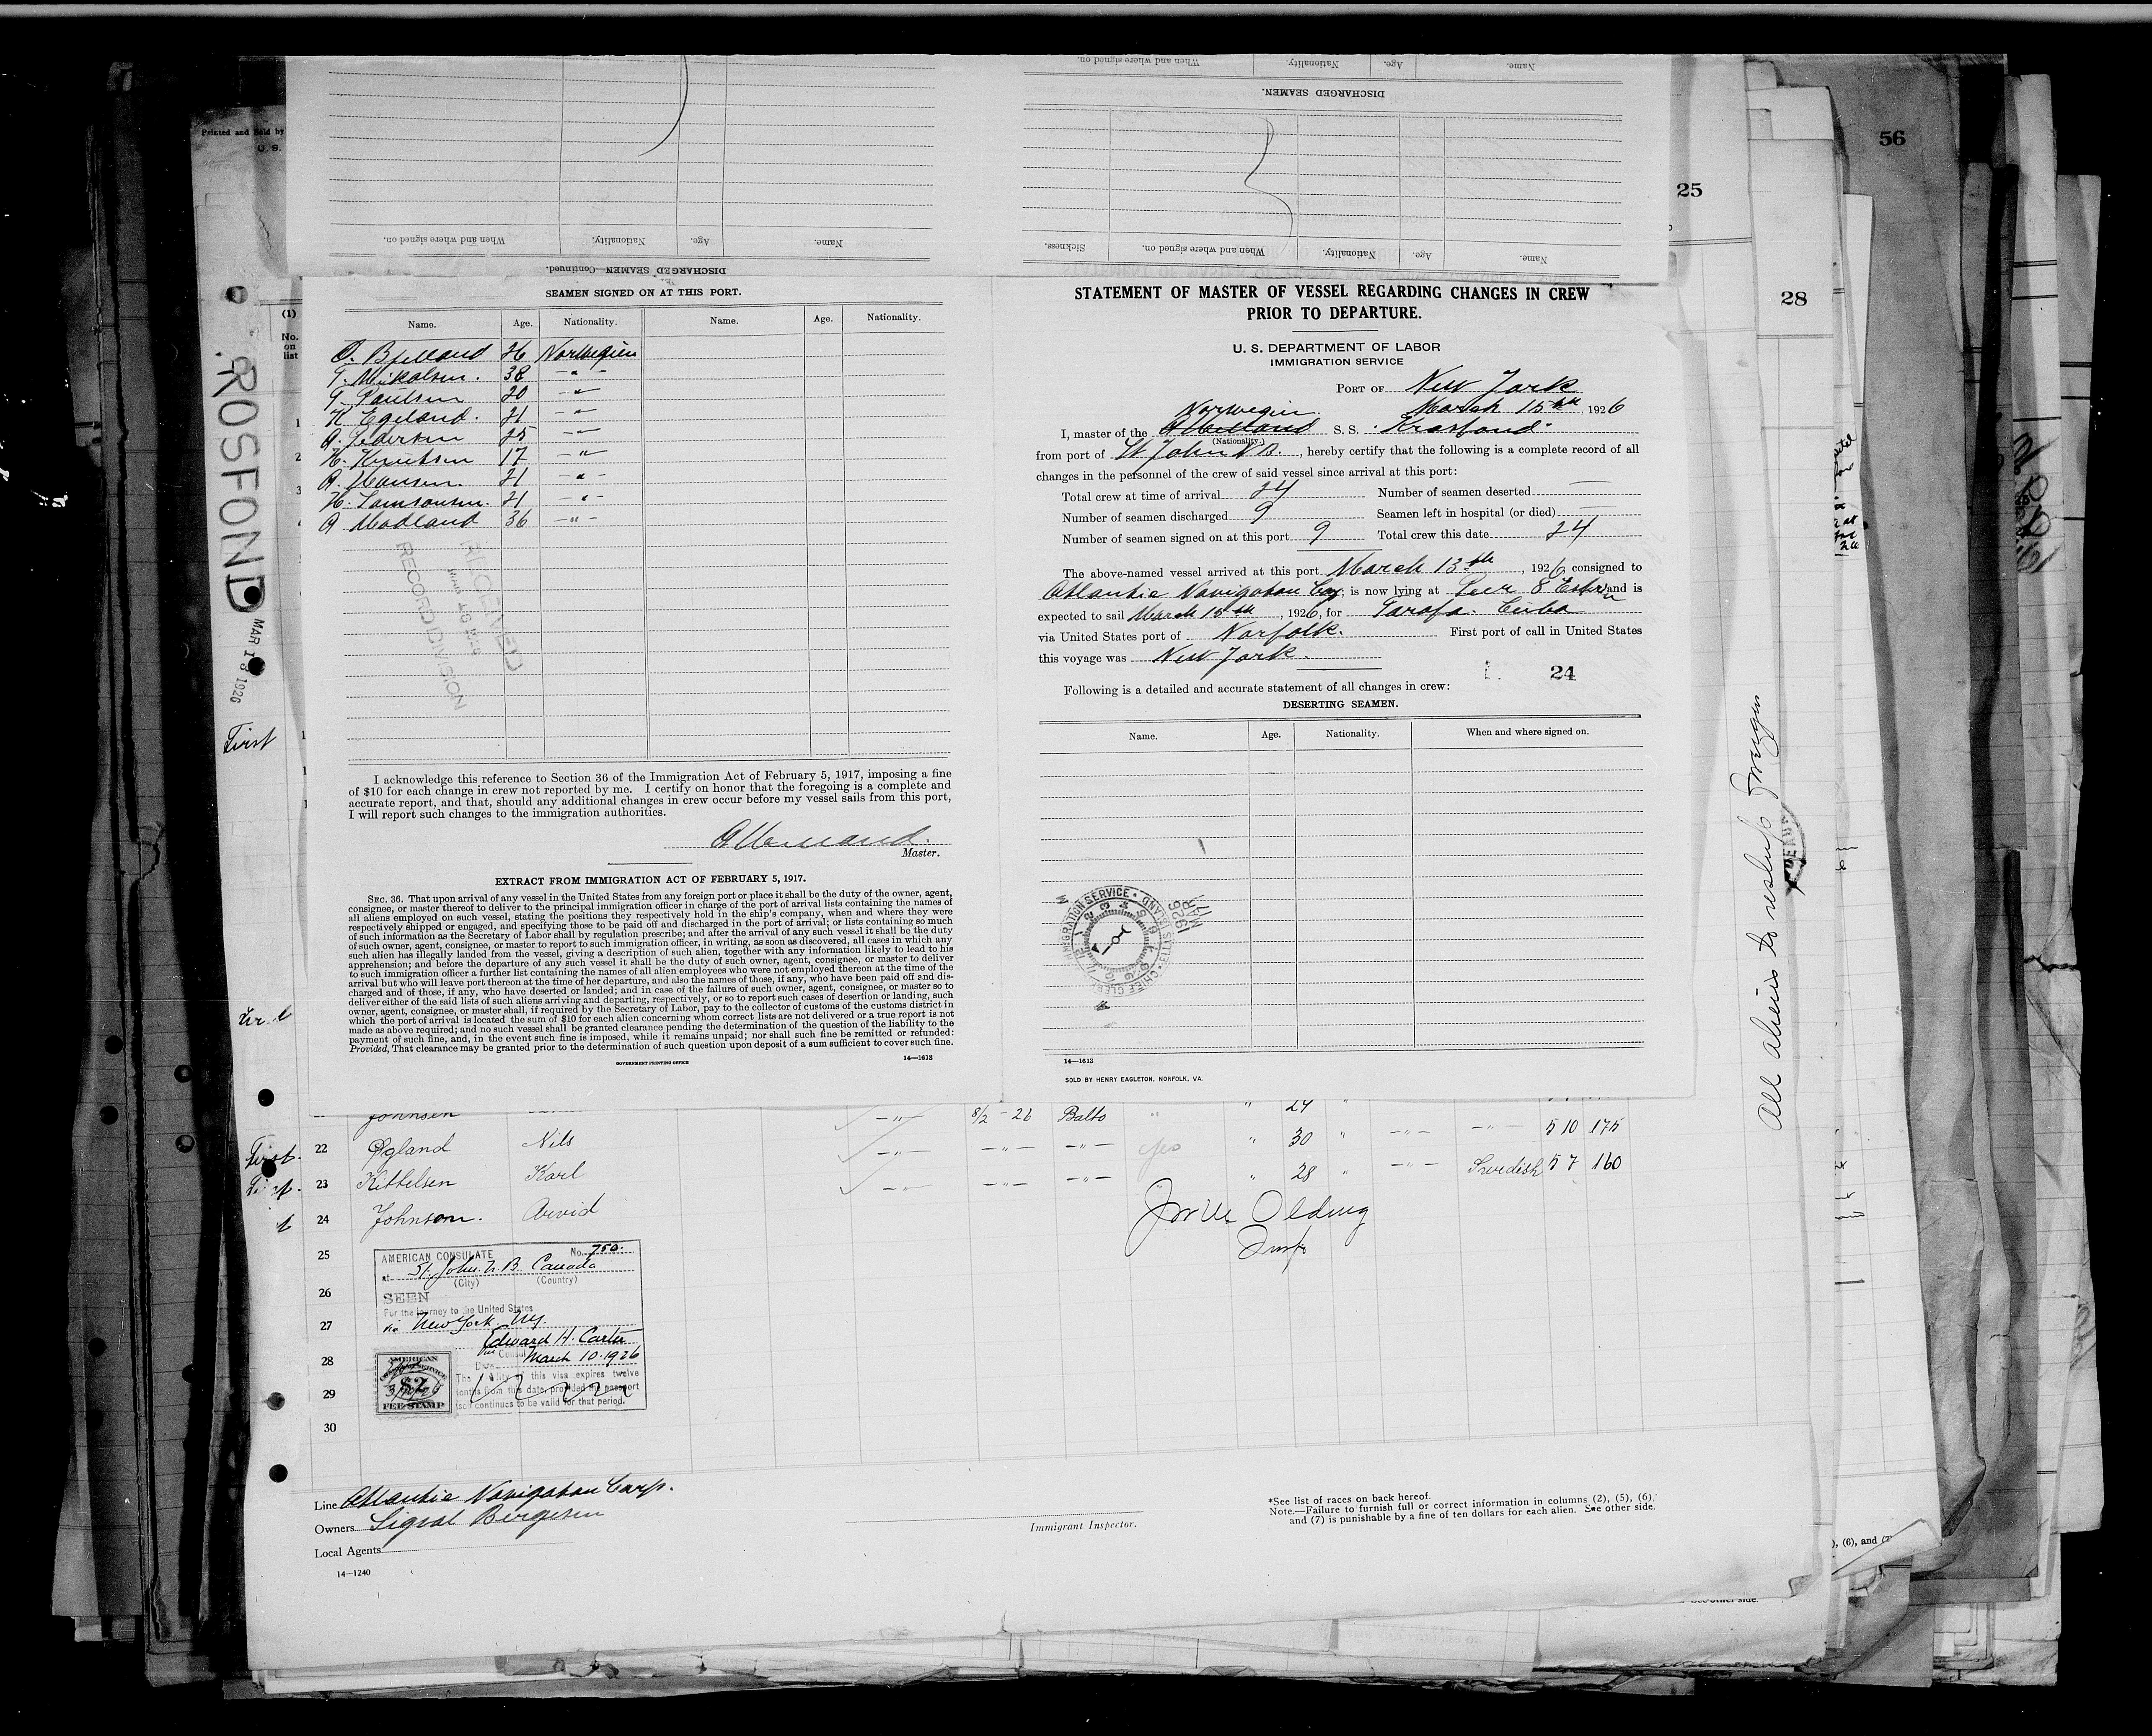 Printed and Sold by
U.S.
Name.
Age.
Nationality.
When and where signed on.
DISCHARGED SEAMEN.
Name.
Age.
Nationality.
When and where signed on.
Sickness.
Name.
Age.
Nationality.
When and where signed on.
DISCHARGED SEAMEN—Continued.
25
28
56
ROSFOND
MAR 13 1926
First
(1)
No. on list
SEAMEN SIGNED ON AT THIS PORT.
Name. Age. Nationality. Name. Age. Nationality.
O. Bjelland 26 Norwegien
T. Mikalsen. 38 —"—
G. Paulsen 20 —"—
K Egeland. 21 —"—
A. Pedersen 25 —"—
K. Knutsen 17 —"—
A. Hansen. 21 —"—
H. Samsonsen. 21 —"—
A Modland 36 —"—
RECEIVED
RECORD DIVISION
I acknowledge this reference to Section 36 of the Immigration Act of February 5, 1917, imposing a fine
of $10 for each change in crew not reported by me. I certify on honor that the foregoing is a complete and
accurate report, and that, should any additional changes in crew occur before my vessel sails from this port,
I will report such changes to the immigration authorities.
Master.
EXTRACT FROM IMMIGRATION ACT OF FEBRUARY 5, 1917.
SEC. 36. That upon arrival of any vessel in the United States from any foreign port or place it shall be the duty of the owner, agent,
consignee, or master thereof to deliver to the principal immigration officer in charge of the port of arrival lists containing the names of
all aliens employed on such vessel, stating the positions they respectively hold in the ship's company, when and where they were
respectively shipped or engaged, and specifying those to be paid off and discharged in the port of arrival; or lists containing so much
of such information as the Secretary of Labor shall by regulation prescribe; and after the arrival of any such vessel it shall be the duty
of such owner, agent, consignee, or master to report to such immigration officer, in writing, as soon as discovered, all cases in which any
such alien has illegally landed from the vessel, giving a description of such alien, together with any information likely to lead to his
apprehension; and before the departure of any such vessel it shall be the duty of such owner, agent, consignee, or master to deliver
to such immigration officer a further list containing the names of all alien employees who were not employed thereon at the time of the
arrival but who will leave port thereon at the time of her departure, and also the names of those, if any, who have been paid off and dis-
charged and of those, if any, who have deserted or landed; and in case of the failure of such owner, agent, consignee, or master so to
deliver either of the said lists of such aliens arriving and departing, respectively, or so to report such cases of desertion or landing, such
owner, agent, consignee, or master shall, if required by the Secretary of Labor, pay to the collector of customs of the customs district in
which the port of arrival is located the sum of $10 for each alien concerning whom correct lists are not delivered or a true report is not
made as above required; and no such vessel shall be granted clearance pending the determination of the question of the liability to the
payment of such fine, and, in the event such fine is imposed, while it remains unpaid; nor shall such fine be remitted or refunded:
Provided, That clearance may be granted prior to the determination of such question upon deposit of a sum sufficient to cover such fine.
GOVERNMENT PRINTING OFFICE 14—1613
STATEMENT OF MASTER OF VESSEL REGARDING CHANGES IN CREW
PRIOR TO DEPARTURE.
U. S. DEPARTMENT OF LABOR
IMMIGRATION SERVICE
PORT OF New York
March 15th, 1926
Norwegin
I, master of the S. S. Krosfond
(Nationality.)
from port of St John N B., hereby certify that the following is a complete record of all
changes in the personnel of the crew of said vessel since arrival at this port:
Total crew at time of arrival 24 Number of seamen deserted —
Number of seamen discharged 9 Seamen left in hospital (or died) —
Number of seamen signed on at this port 9 Total crew this date 24
The above-named vessel arrived at this port March 13th, 1926, consigned to
Atlantic Navigation Corp, is now lying at Peer 8 and is
expected to sail March 15th, 1926, for Tarafa. Cuba
via United States port of Norfolk. First port of call in United States
this voyage was New York.
24
Following is a detailed and accurate statement of all changes in crew:
DESERTING SEAMEN.
Name. Age. Nationality. When and where signed on.
IMMIGRATION SERVICE • ELLIS ISLAND • CHIEF CLERK
MAR 17 1926
14—1613
SOLD BY HENRY EAGLETON, NORFOLK, VA.
All aliens to reship foreign
Johnsen —"— 8/2 - 26 Balto " " 24 "
First. 22 Øgland Nils —"— —"— —"— yes " 30 " —"— —"— 5 10 175
First. 23 Kittelsen Karl —"— —"— —"— " 28 " —"— Swedish 5 7 160
24 Johnson. Arvid
25
26
27
28
29
30
AMERICAN CONSULATE No. 750.
at St. John. N. B. Canada
(City) (Country)
SEEN
For the journey to the United States
via New York Ny.
Edward H. Carter
Consul
Date March 10-1926
The validity of this visa expires twelve
months from this date, provided the passport
itself continues to be valid for that period.
AMERICAN
CONSULAR SERVICE
$2
FEE STAMP
Olding
Insp
Line Atlantic Navigation Corp.
Owners Sigval Bergesen
Local Agents
14—1240
Immigrant Inspector.
*See list of races on back hereof.
Note.—Failure to furnish full or correct information in columns (2), (5), (6),
and (7) is punishable by a fine of ten dollars for each alien. See other side.
), (6), and (7)
See other side.